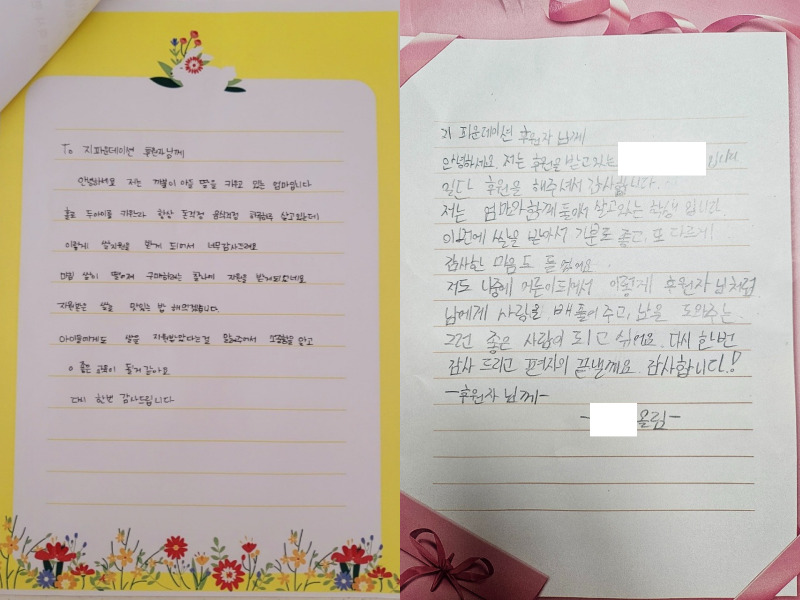 To 지파운데이션 후원자님께
안녕하세요 저는 아들 딸을 키우고 있는 엄마입니다
홀로 두아이를 키우느라 항상 돈걱정 살고있는데
이렇게 쌀지원을 받게 되어서 너무감사드려요
쌀이 떨어져 구매하려는 찰나에 지원을 받게되었네요
지원받은 쌀로 맛있는 밥
아이들에게도 쌀을 지원받았다는걸 알고
좋은 될거 같아요
다시 한번 감사드립니다
지 파운데이션 후원자님께
안녕하세요 저는 후원을 받고있는 입니다
일단 후원을 해주셔서 감사합니다.
저는 엄마와 함께 둘이서 살고있는 학생 입니다.
이번에 쌀을 받아서 기분도 좋고, 또 다르게
감사한 마음도 들었어요.
저도 나중에 어른이되어서 이렇게 후원자님처럼
남에게 사랑을 베풀어주고, 남을 도와주는.
그런 좋은 사람이 되고 싶어요. 다시 한번
감사 드리고 편지의 끝낼께요. 감사합니다!
-후원자 님께-
- 올림-